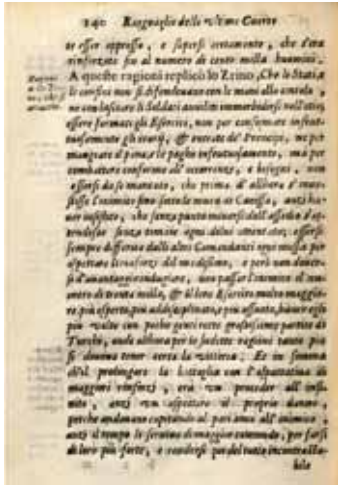 240 Ragguaglio delle Ultime Guerre
te esser appresso, e sapersi certamente, che s'era
rinforzato fin al numero di cento milla huomini.
A queste ragioni replicò lo Zrino, Che li Stati, e
le confini non si difendeuano con le mani alla cintola,
ne con lasciare li Soldati
essere formati gli Eserciti, non per consumare infrut-
tuosamente gli erarij, & entrate de' Prencipi, ne per
mangiare il pane, e le paghe infruttuosamente, ma per
combattere conforme all' occorrenze, e bisogni, non
essersi da se mancato, che prima d' allhora s' attac-
casse l'inimico sino sotto le mura di Canissa, anzi ha-
uer insistito, che senza punto mouersi dall' assedio s' at-
tendesse senza temere ogni altro cimento; essersi
sempre differito dalli altri Comandanti ogni mossa per
aspettare li rinforzi del medesimo, e però non douer-
si d'auantaggio indugiare, non passar l'inimico il nu-
mero di trenta milla, & il loro Esercito molto maggio-
re, più esperto, più addisciplinato, e più assueto, hauer egli
più volte con poche genti rotte grossissime partite di
Turchi, onde allhora per le sudette ragioni tanto più
si doueua tener certa la vittoria. Et in somma
ch'il prolungare la battaglia con l'aspettatiua di
maggiori rinforzi, era vn proceder all' oppo-
sito, anzi vn aspettare il proprio danno,
perche andauano capitando al pari anco all' inimico,
anzi il tempo le seruiua di maggior commodo, per farsi
di loro più forte, e rendersi poi del tutto incontrasta-
bile